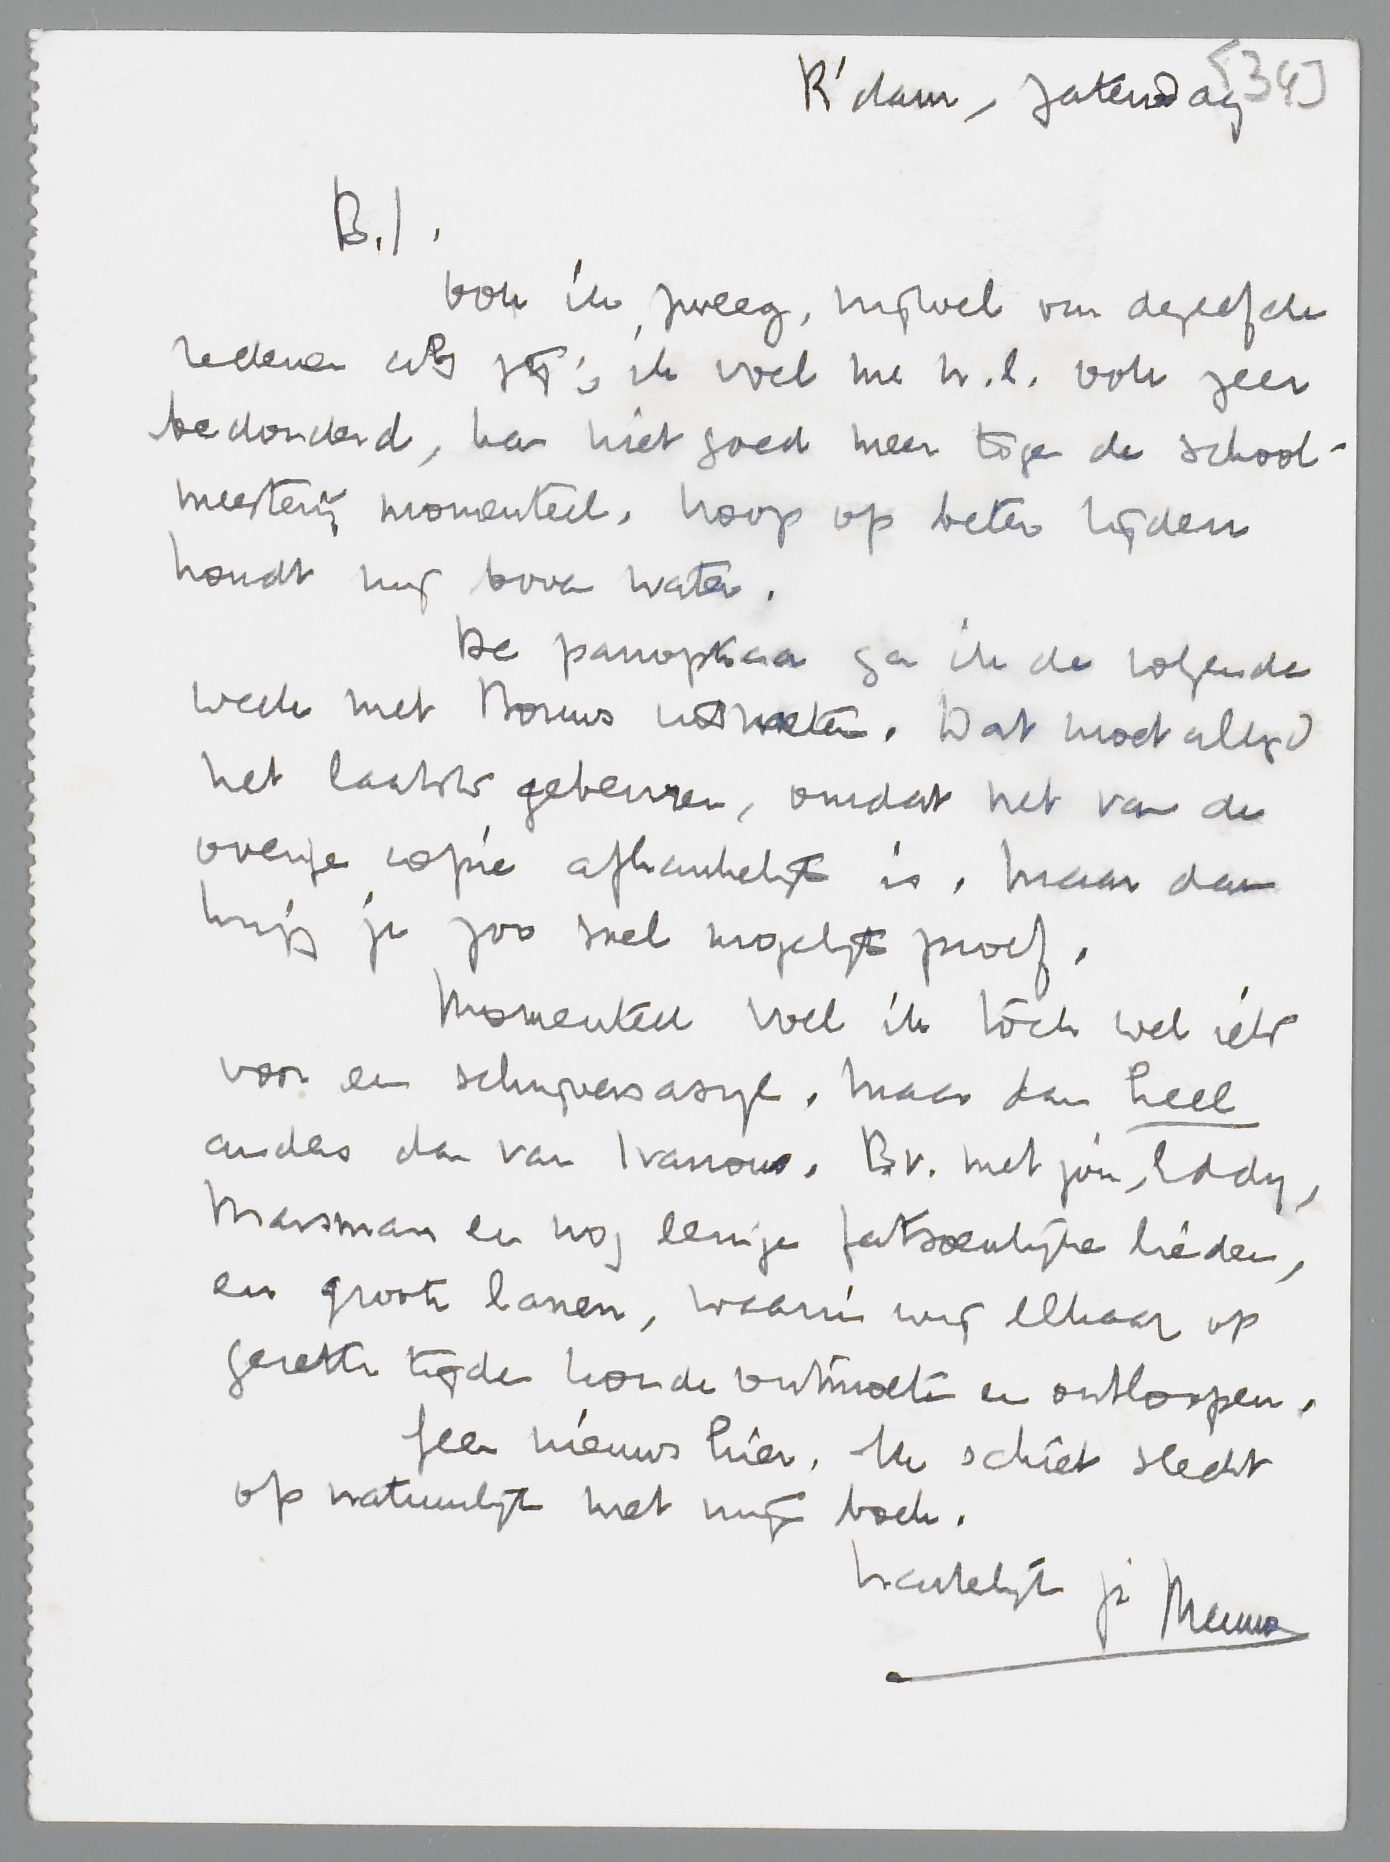 R'dam, Zaterdag [34]
B.J.,
ook ik zweeg, mijwel om dezelfde
redenen als jij; ik voel me n.l. ook zeer
bedonderd, kan niet goed meer tegen de school-
meesterij momenteel. Hoop op beter tijden
houdt mij boven water.
De panopticaa ga ik de volgende
week met Bouws. Dat moet altijd
het laatste gebeuren, omdat het van de
overige copie afhankelijk is. Maar dan
krijg je zoo snel mogelijk proef.
Momenteel voel ik tóch wel iets
voor een schrijversasyl. Maar dan heel
anders dan van Ivanow. B.v. met jou, Eddy,
Marsman en nog eenige fatsoenlijke lieden,
en groote lanen, waarin wij elkaar op
gezette tijden konden ontmoeten en ontloopen.
Geen nieuws hier. Ik schiet slecht
op natuurlijk met mijn boek.
hartelijk je Menno